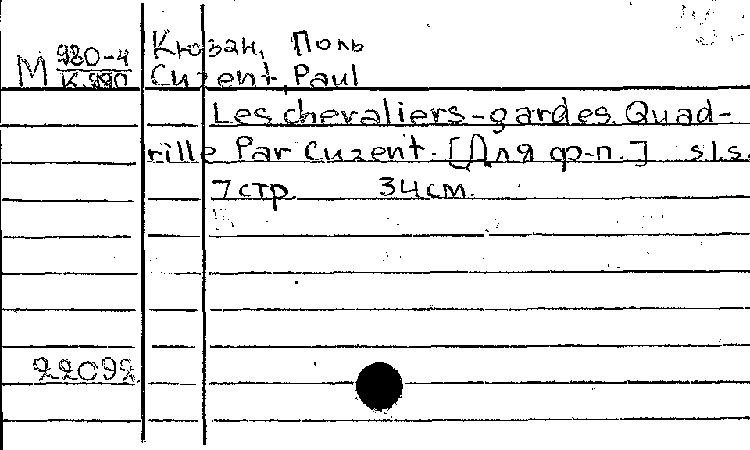 М 980-4 Кюзан, Поль
К.990 Cuzent, Paul
Les chevaliers-gardes. Quad-
rille Par Cuzent. [Для ф-п.] s.l.s.
7 стр. 34 см.
22092